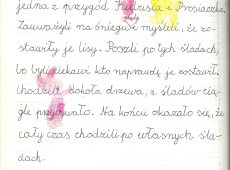 jedna z przygód Puchasia i Prosiaczka.
Zauważyli na śniegu i myśleli, że zo-
stawiły je lisy. Poszli po tych śladach,
bo byli ciekawi kto naprawdę je zostawił.
Chodzili dokoła drzewa, a śladów cią-
gle przybywało. Na końcu okazało się, że
cały czas chodzili po własnych śla-
dach.